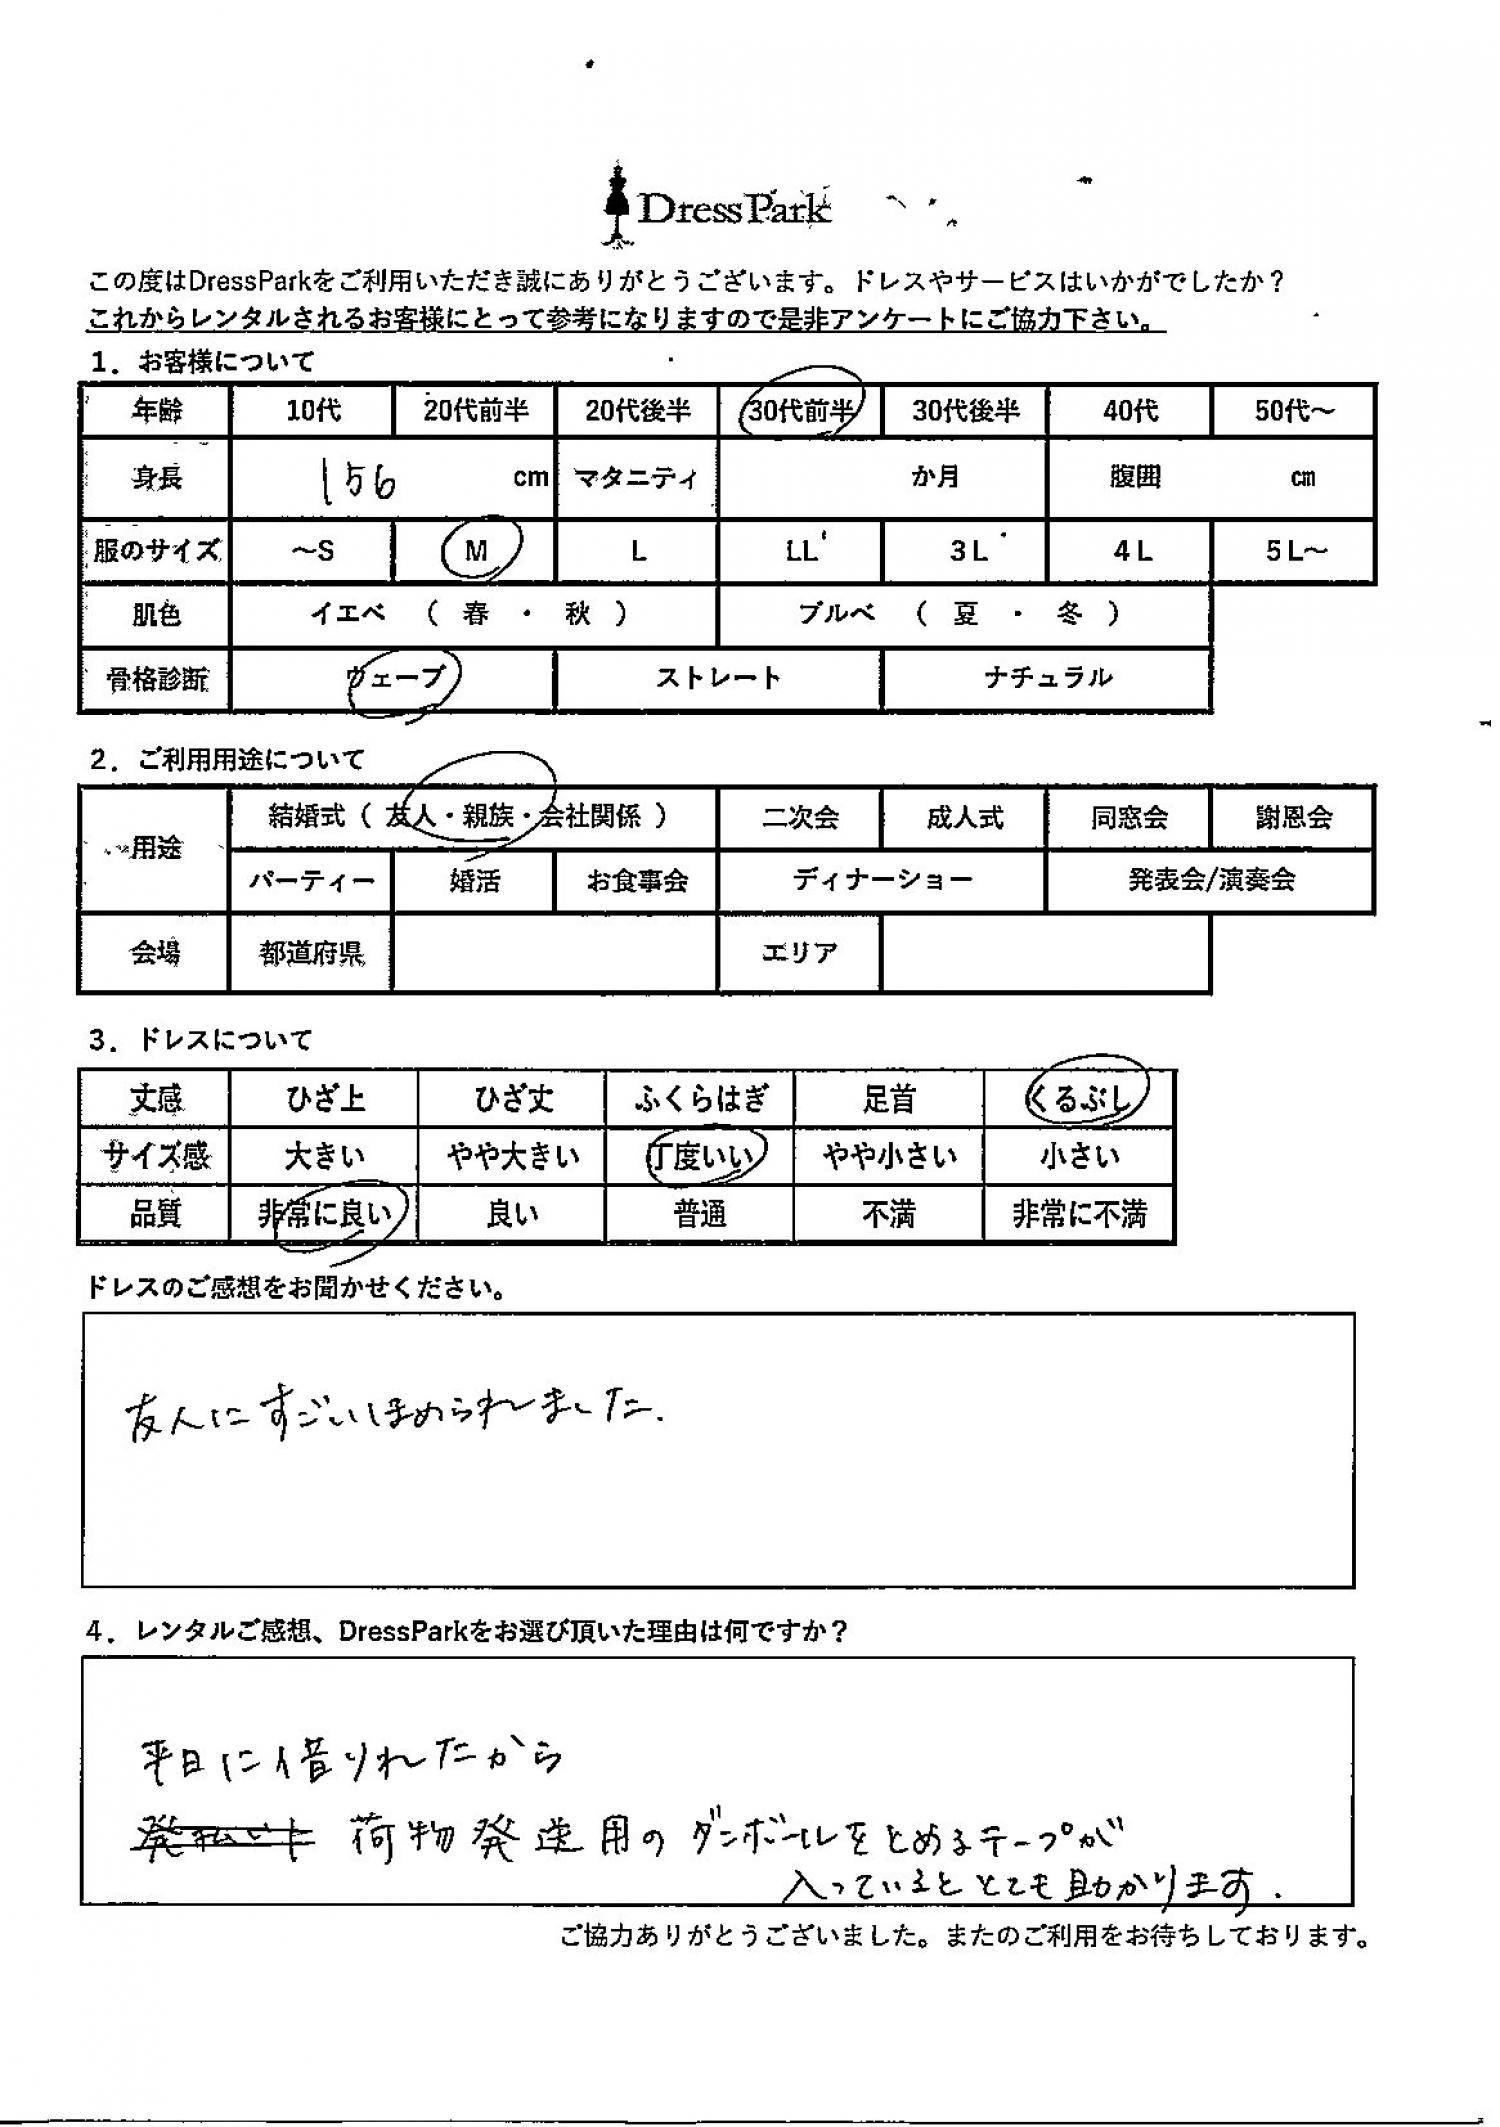 DressPark
この度はDressParkをご利用いただき誠にありがとうございます。ドレスやサービスはいかがでしたか？
これからレンタルされるお客様にとって参考になりますので是非アンケートにご協力下さい。
1．お客様について
年齢 10代 20代前半 20代後半 30代前半 30代後半 40代 50代～
身長 156 cm マタニティ か月 腹囲 ㎝
服のサイズ ～S M L LL 3L 4L 5L～
肌色 イエベ （ 春 ・ 秋 ） ブルベ （ 夏 ・ 冬 ）
骨格診断 ウェーブ ストレート ナチュラル
2．ご利用用途について
用途 結婚式（ 友人・親族・会社関係 ） 二次会 成人式 同窓会 謝恩会
パーティー 婚活 お食事会 ディナーショー 発表会/演奏会
会場 都道府県 エリア
3．ドレスについて
丈感 ひざ上 ひざ丈 ふくらはぎ 足首 くるぶし
サイズ感 大きい やや大きい 丁度いい やや小さい 小さい
品質 非常に良い 良い 普通 不満 非常に不満
ドレスのご感想をお聞かせください。
友人にすごいほめられました.
4．レンタルご感想、DressParkをお選び頂いた理由は何ですか？
平日に借りれたから
荷物発送用のダンボールをとめるテープが
入っているととても助かります.
ご協力ありがとうございました。またのご利用をお待ちしております。